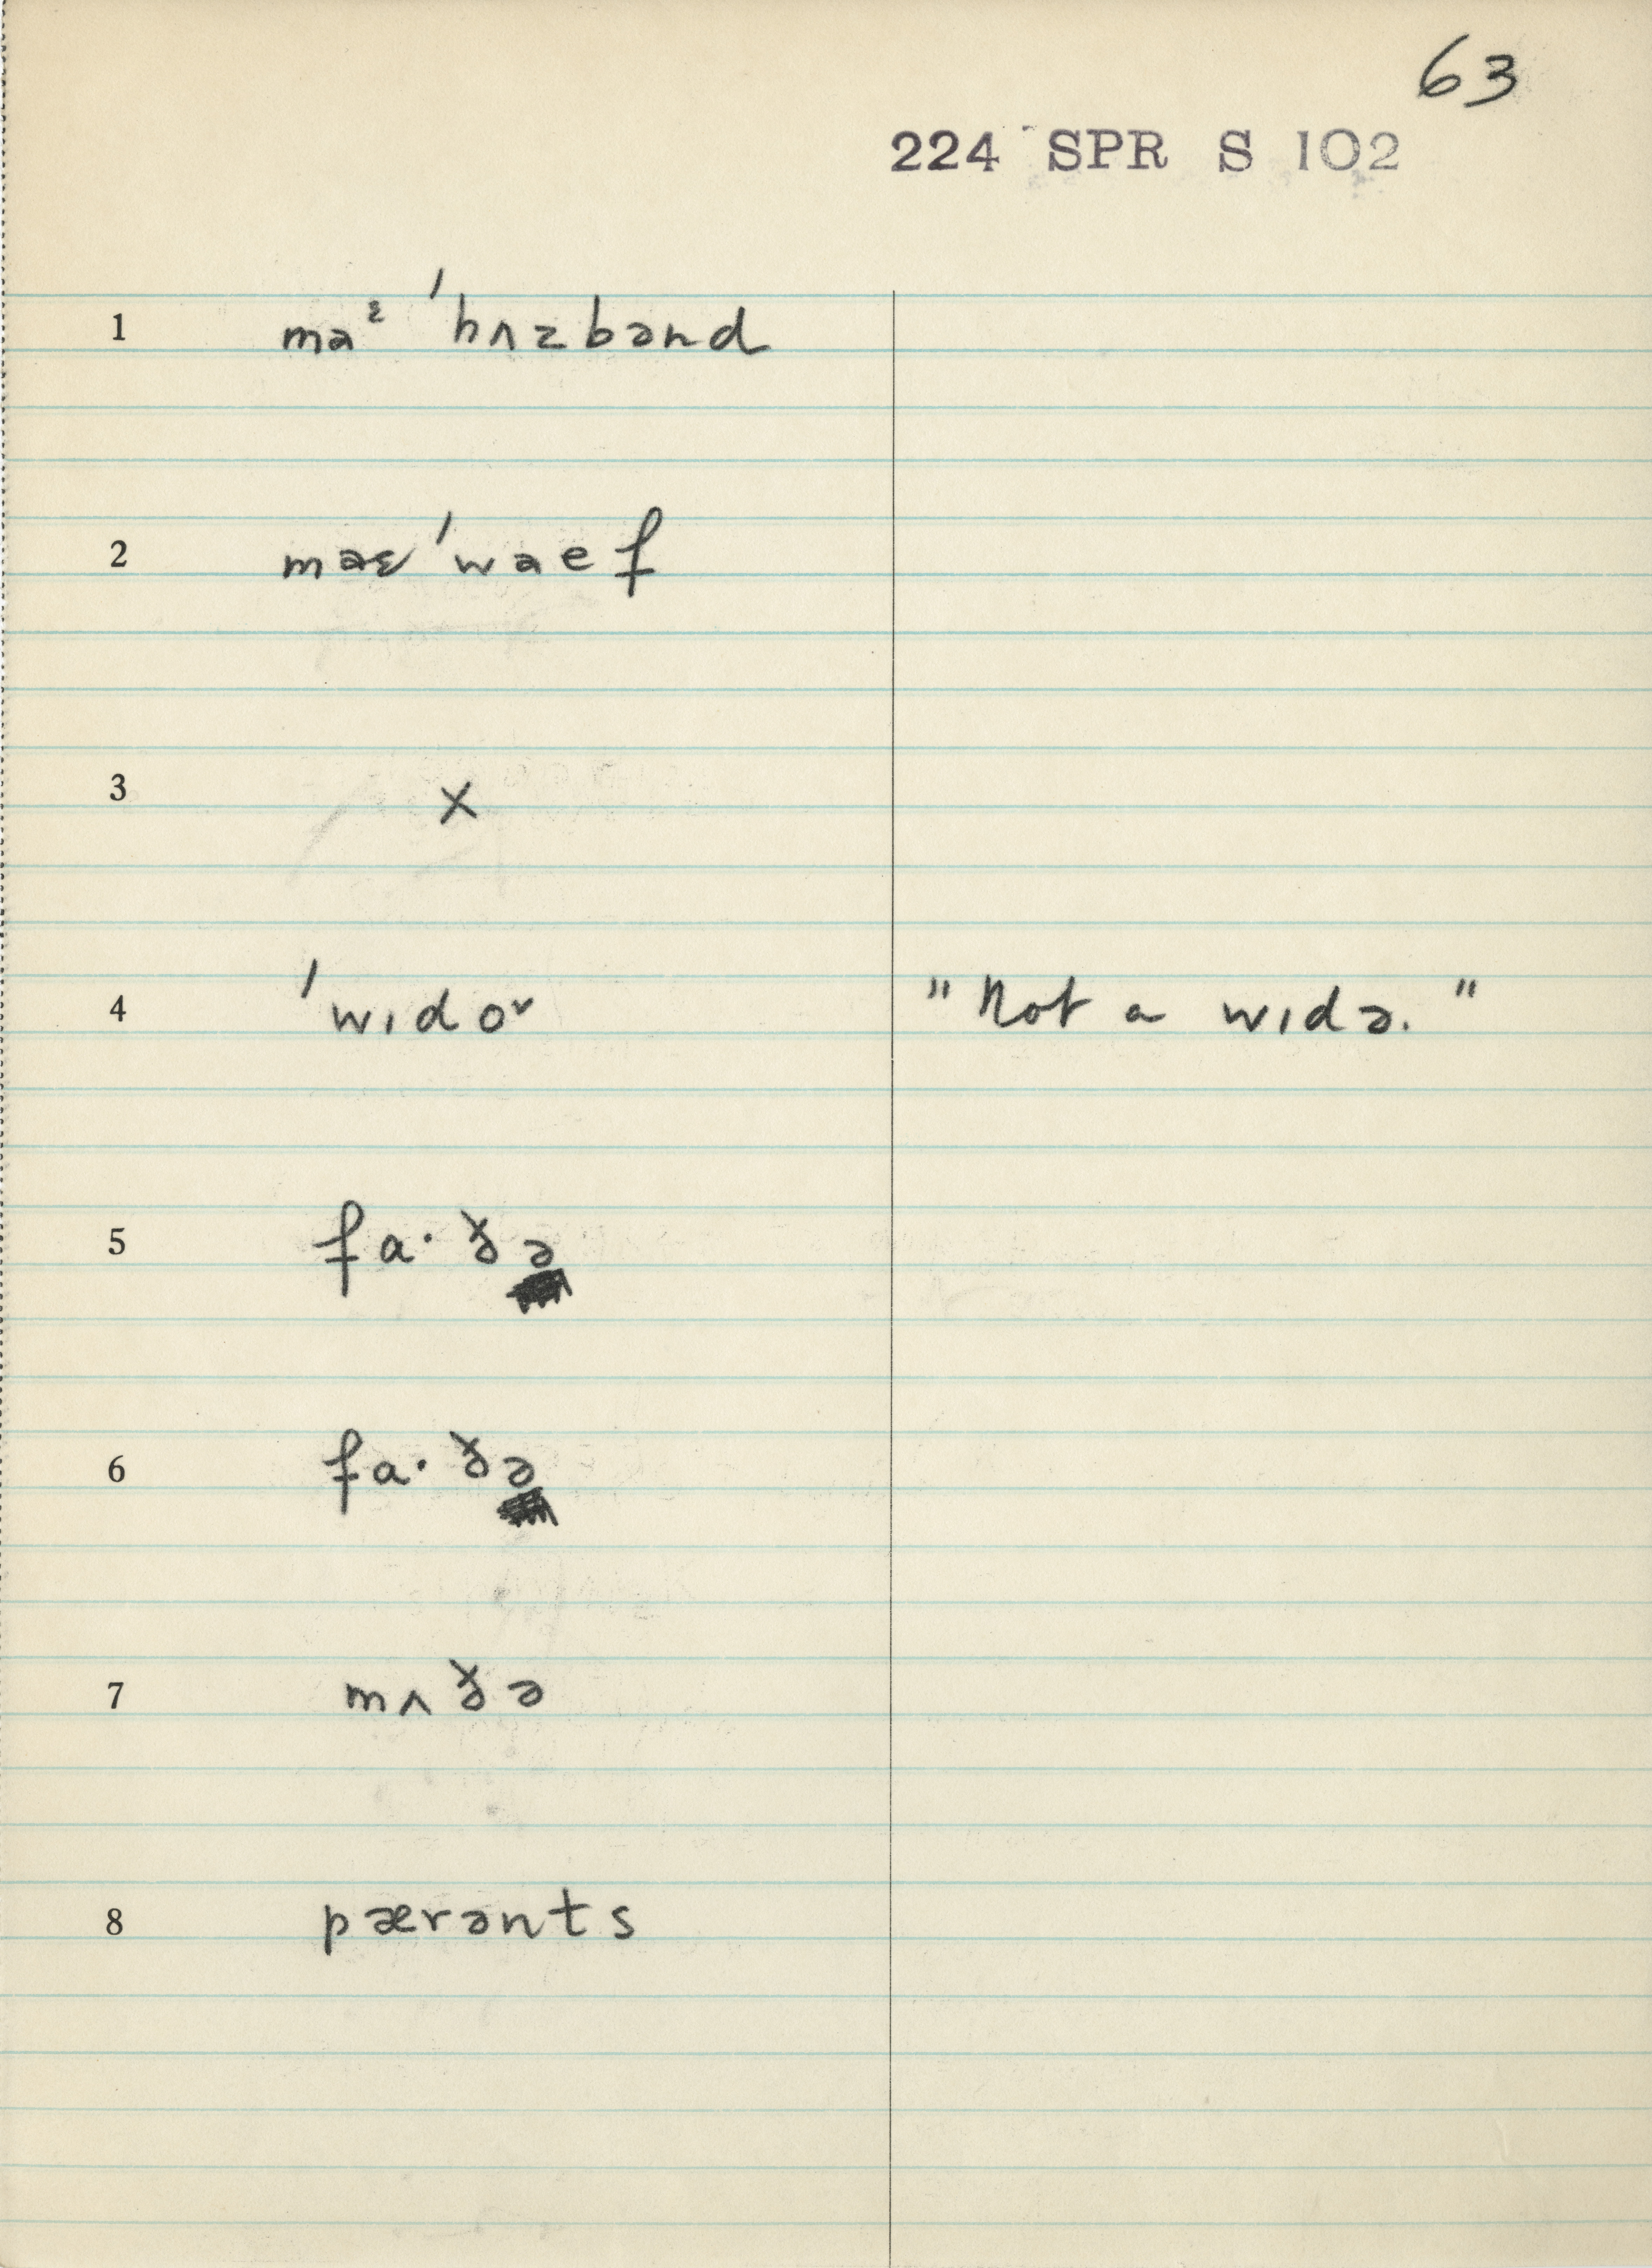 63
224 SPR S 102
1 maᶤ ˈhʌzbənd
2 maɛ ˈwaef
3 X
4 ˈwɪdoʌ "Not a wɪdə."
5 fa·ðə
6 fa·ðə
7 mʌðə
8 pærənts